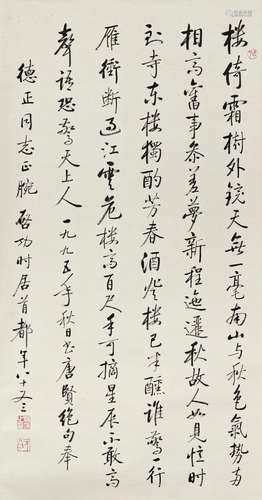 樓倚霜樹外鏡天無一毫南山与秋色氣勢兩
相高舊事參差夢新程迤邐秋故人如見憶時
到寺東樓獨酌芳春酒登樓已半醺誰驚一行
雁衝斷過江雲危樓高百尺手可摘星辰不敢高
聲語恐驚天上人一九九五年秋日書唐賢絕句奉
德正同志正腕 啟功時居首都年八十又三